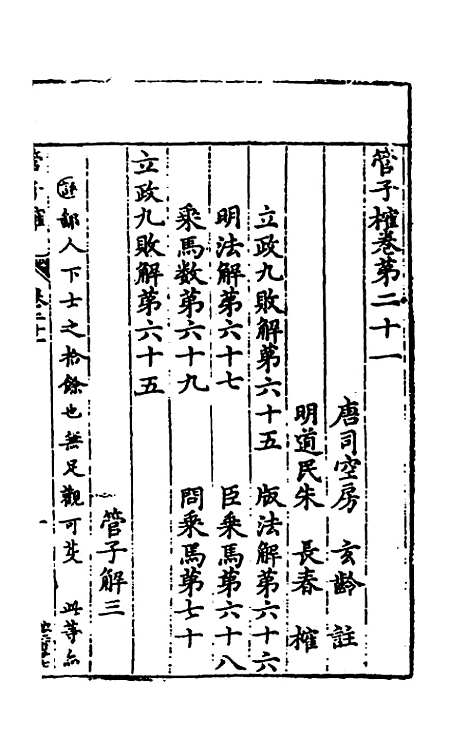 管子榷卷第二十一
唐司空房玄齡註
明道民朱長春榷
立政九敗解第六十五　版法解第六十六
明法解第六十七　臣乘馬第六十八
乘馬数第六十九　問乘馬第七十
立政九敗解第六十五
管子解三
鄙人下士之拾餘也無足觀可芟　此等亦
管子榷　卷二十一